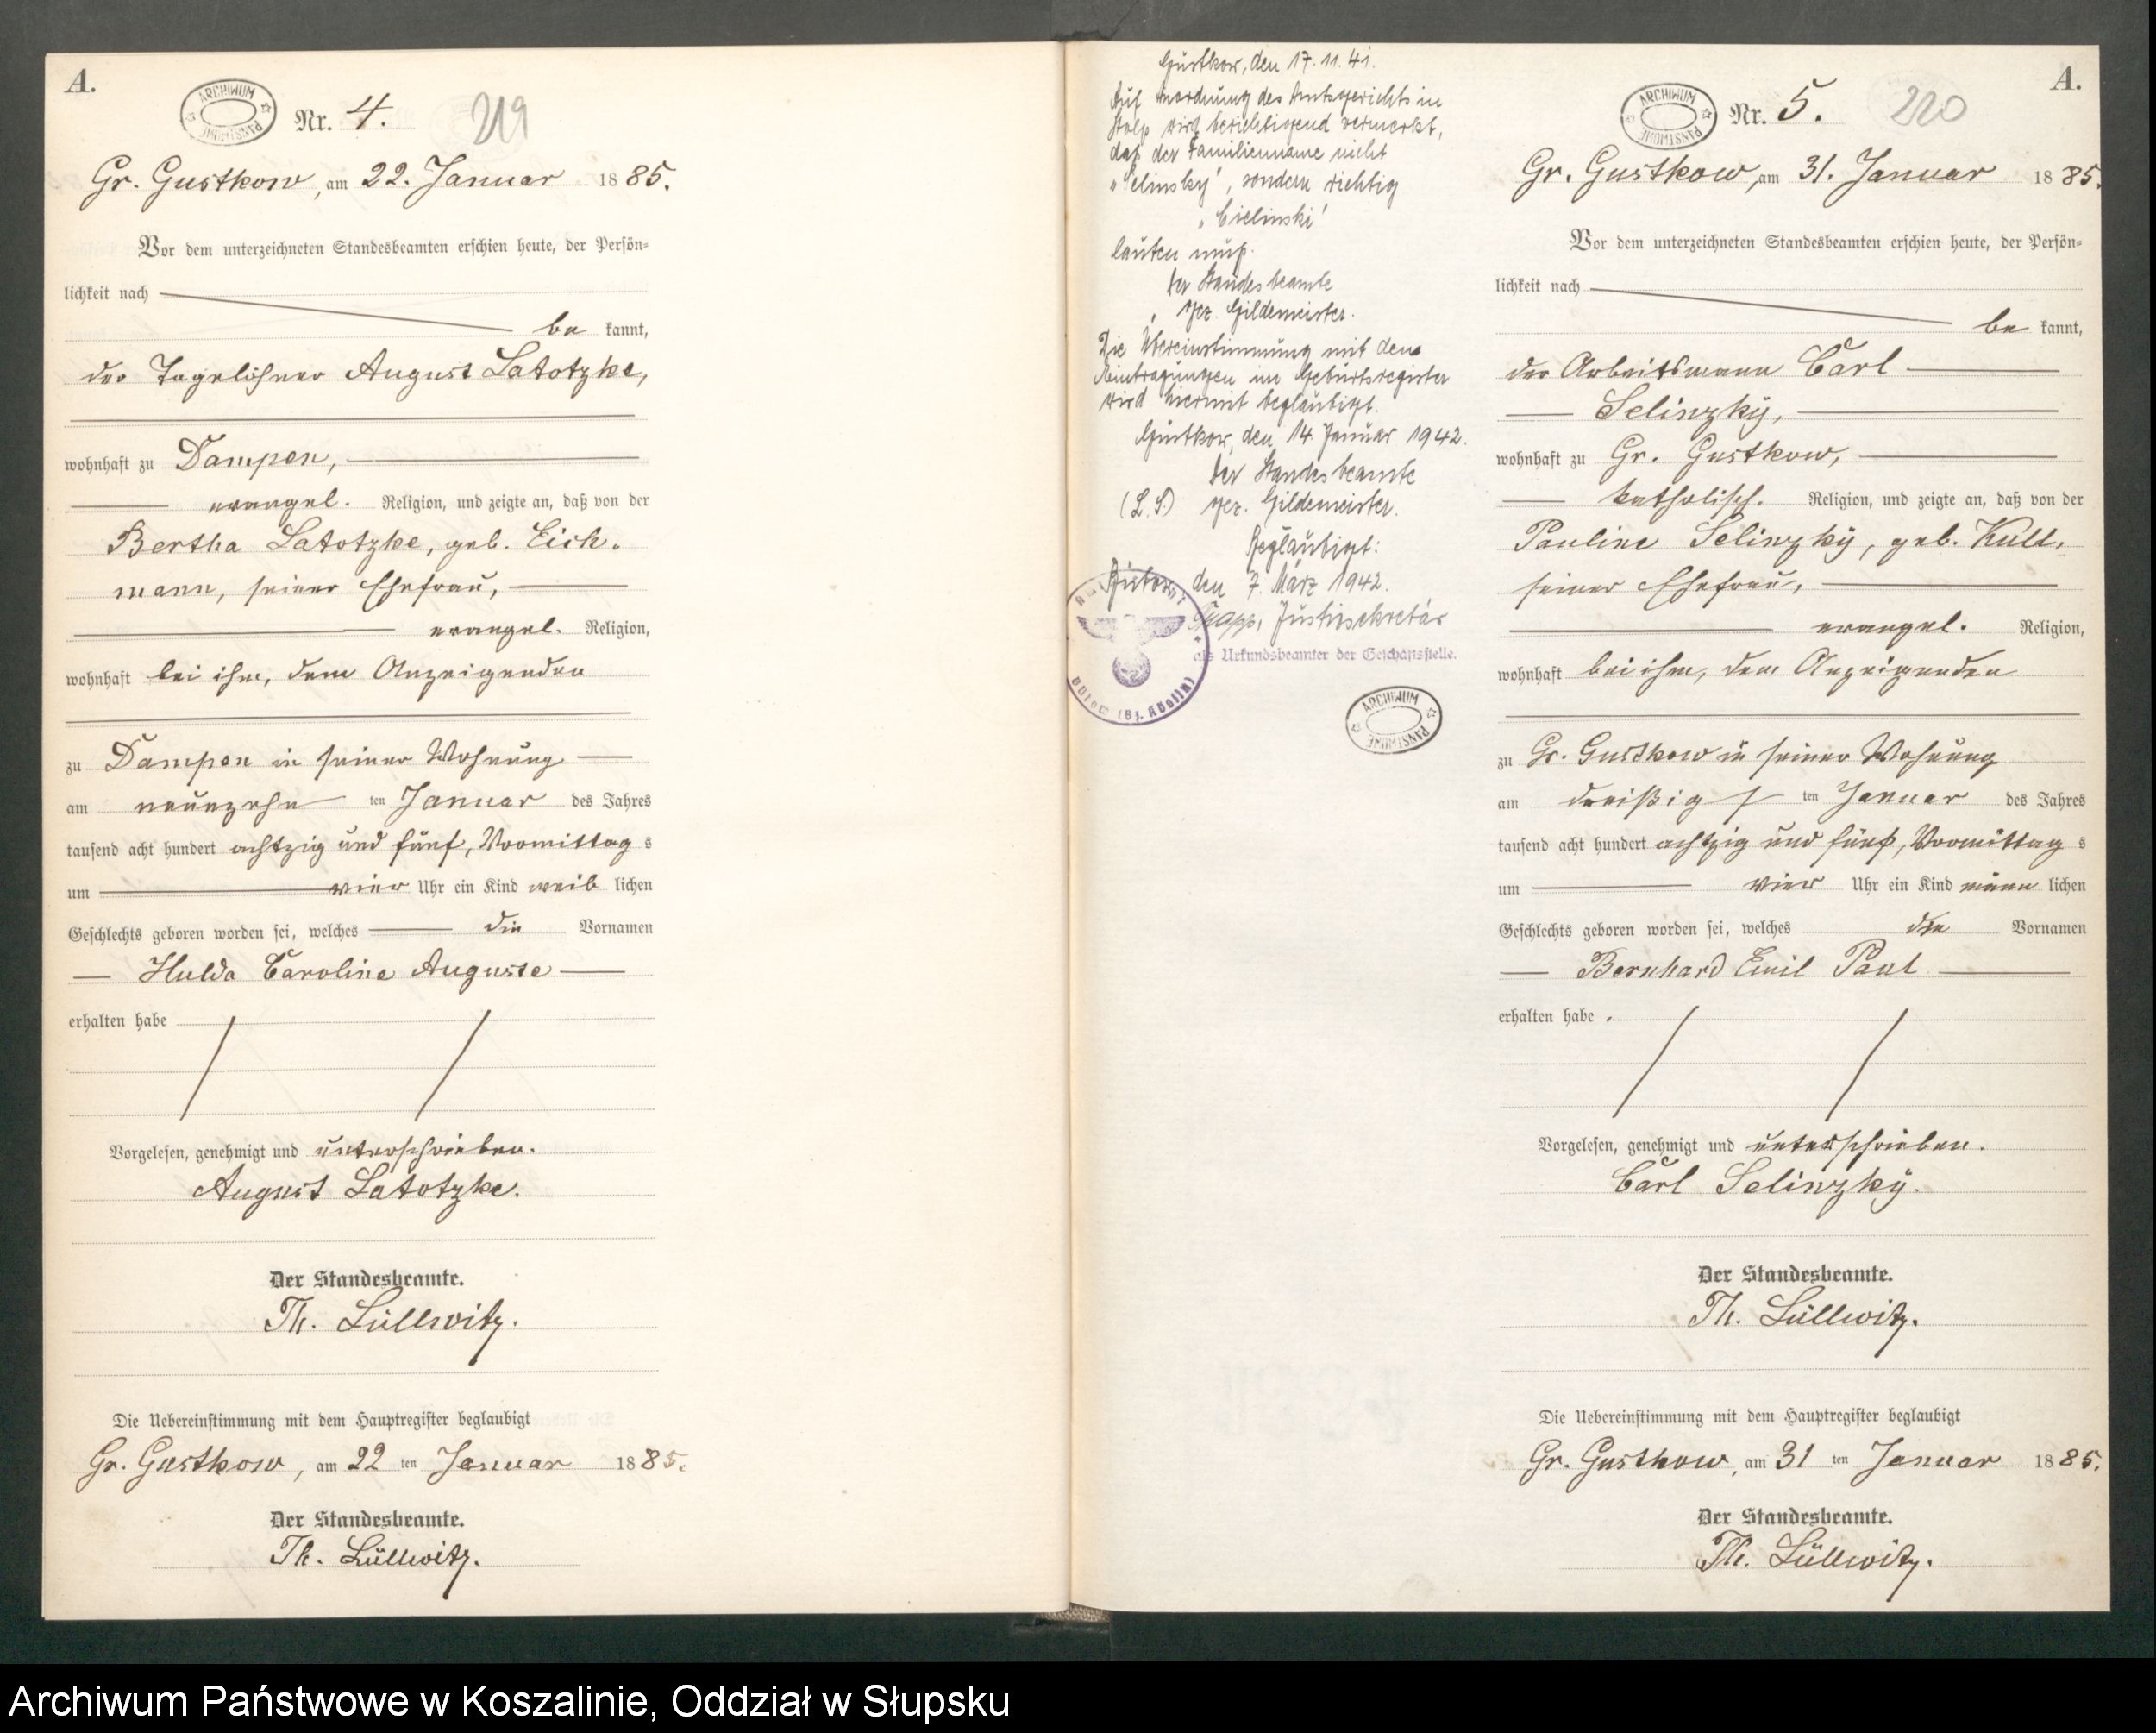 A.
ARCHIWUM PAŃSTWOWE
Nr. 4.
219
Gr. Gustkow, am 22. Januar 1885.
Vor dem unterzeichneten Standesbeamten erschien heute, der Persön-
lichkeit nach
be kannt,
der Tagelöhner August Latotzke,
wohnhaft zu Dampen,
evangel. Religion, und zeigte an, daß von der
Bertha Latotzke, geb. Eich-
mann, seiner Ehefrau,
evangel. Religion,
wohnhaft bei ihm, dem Anzeigenden
zu Dampen in seiner Wohnung
am neunzehn ten Januar des Jahres
tausend acht hundert achtzig und fünf, Vormittag s
um vier Uhr ein Kind weib lichen
Geschlechts geboren worden sei, welches die Vornamen
Hulda Caroline Auguste
erhalten habe
Vorgelesen, genehmigt und unterschrieben.
August Latotzke.
Der Standesbeamte.
Th. Lüllwitz.
Die Uebereinstimmung mit dem Hauptregister beglaubigt
Gr. Gustkow, am 22 ten Januar 1885.
Der Standesbeamte.
Th. Lüllwitz.
Güstkow, den 17.11.41.
Auf Anordnung des Amtsgerichts in
Stolp wird berichtigend vermerkt,
daß der Familienname nicht
"Selinsky", sondern richtig
"Cielinski"
lauten muß.
Der Standesbeamte
gez. Gildemeister.
Die Übereinstimmung mit den
Eintragungen im Geburtsregister
wird hiermit beglaubigt.
Güstkow, den 14. Januar 1942.
Der Standesbeamte
(L.S.) gez. Gildemeister.
Beglaubigt:
Bütow, den 7. März 1942.
Justizsekretär
als Urkundsbeamter der Geschäftsstelle.
Bütow (Bz. Köslin)
ARCHIWUM PAŃSTWOWE
A.
ARCHIWUM PAŃSTWOWE
Nr. 5.
220
Gr. Gustkow, am 31. Januar 1885.
Vor dem unterzeichneten Standesbeamten erschien heute, der Persön-
lichkeit nach
be kannt,
der Arbeitsmann Carl
Selinzky,
wohnhaft zu Gr. Gustkow,
katholisch. Religion, und zeigte an, daß von der
Pauline Selinzky, geb. Kull,
seiner Ehefrau,
evangel. Religion,
wohnhaft bei ihm, dem Anzeigenden
zu Gr. Gustkow in seiner Wohnung
am dreißig s ten Januar des Jahres
tausend acht hundert achtzig und fünf, Vormittag s
um vier Uhr ein Kind männ lichen
Geschlechts geboren worden sei, welches die Vornamen
Bernhard Emil Paul
erhalten habe.
Vorgelesen, genehmigt und unterschrieben.
Carl Selinzky.
Der Standesbeamte.
Th. Lüllwitz.
Die Uebereinstimmung mit dem Hauptregister beglaubigt
Gr. Gustkow, am 31 ten Januar 1885.
Der Standesbeamte.
Th. Lüllwitz.
Archiwum Państwowe w Koszalinie, Oddział w Słupsku